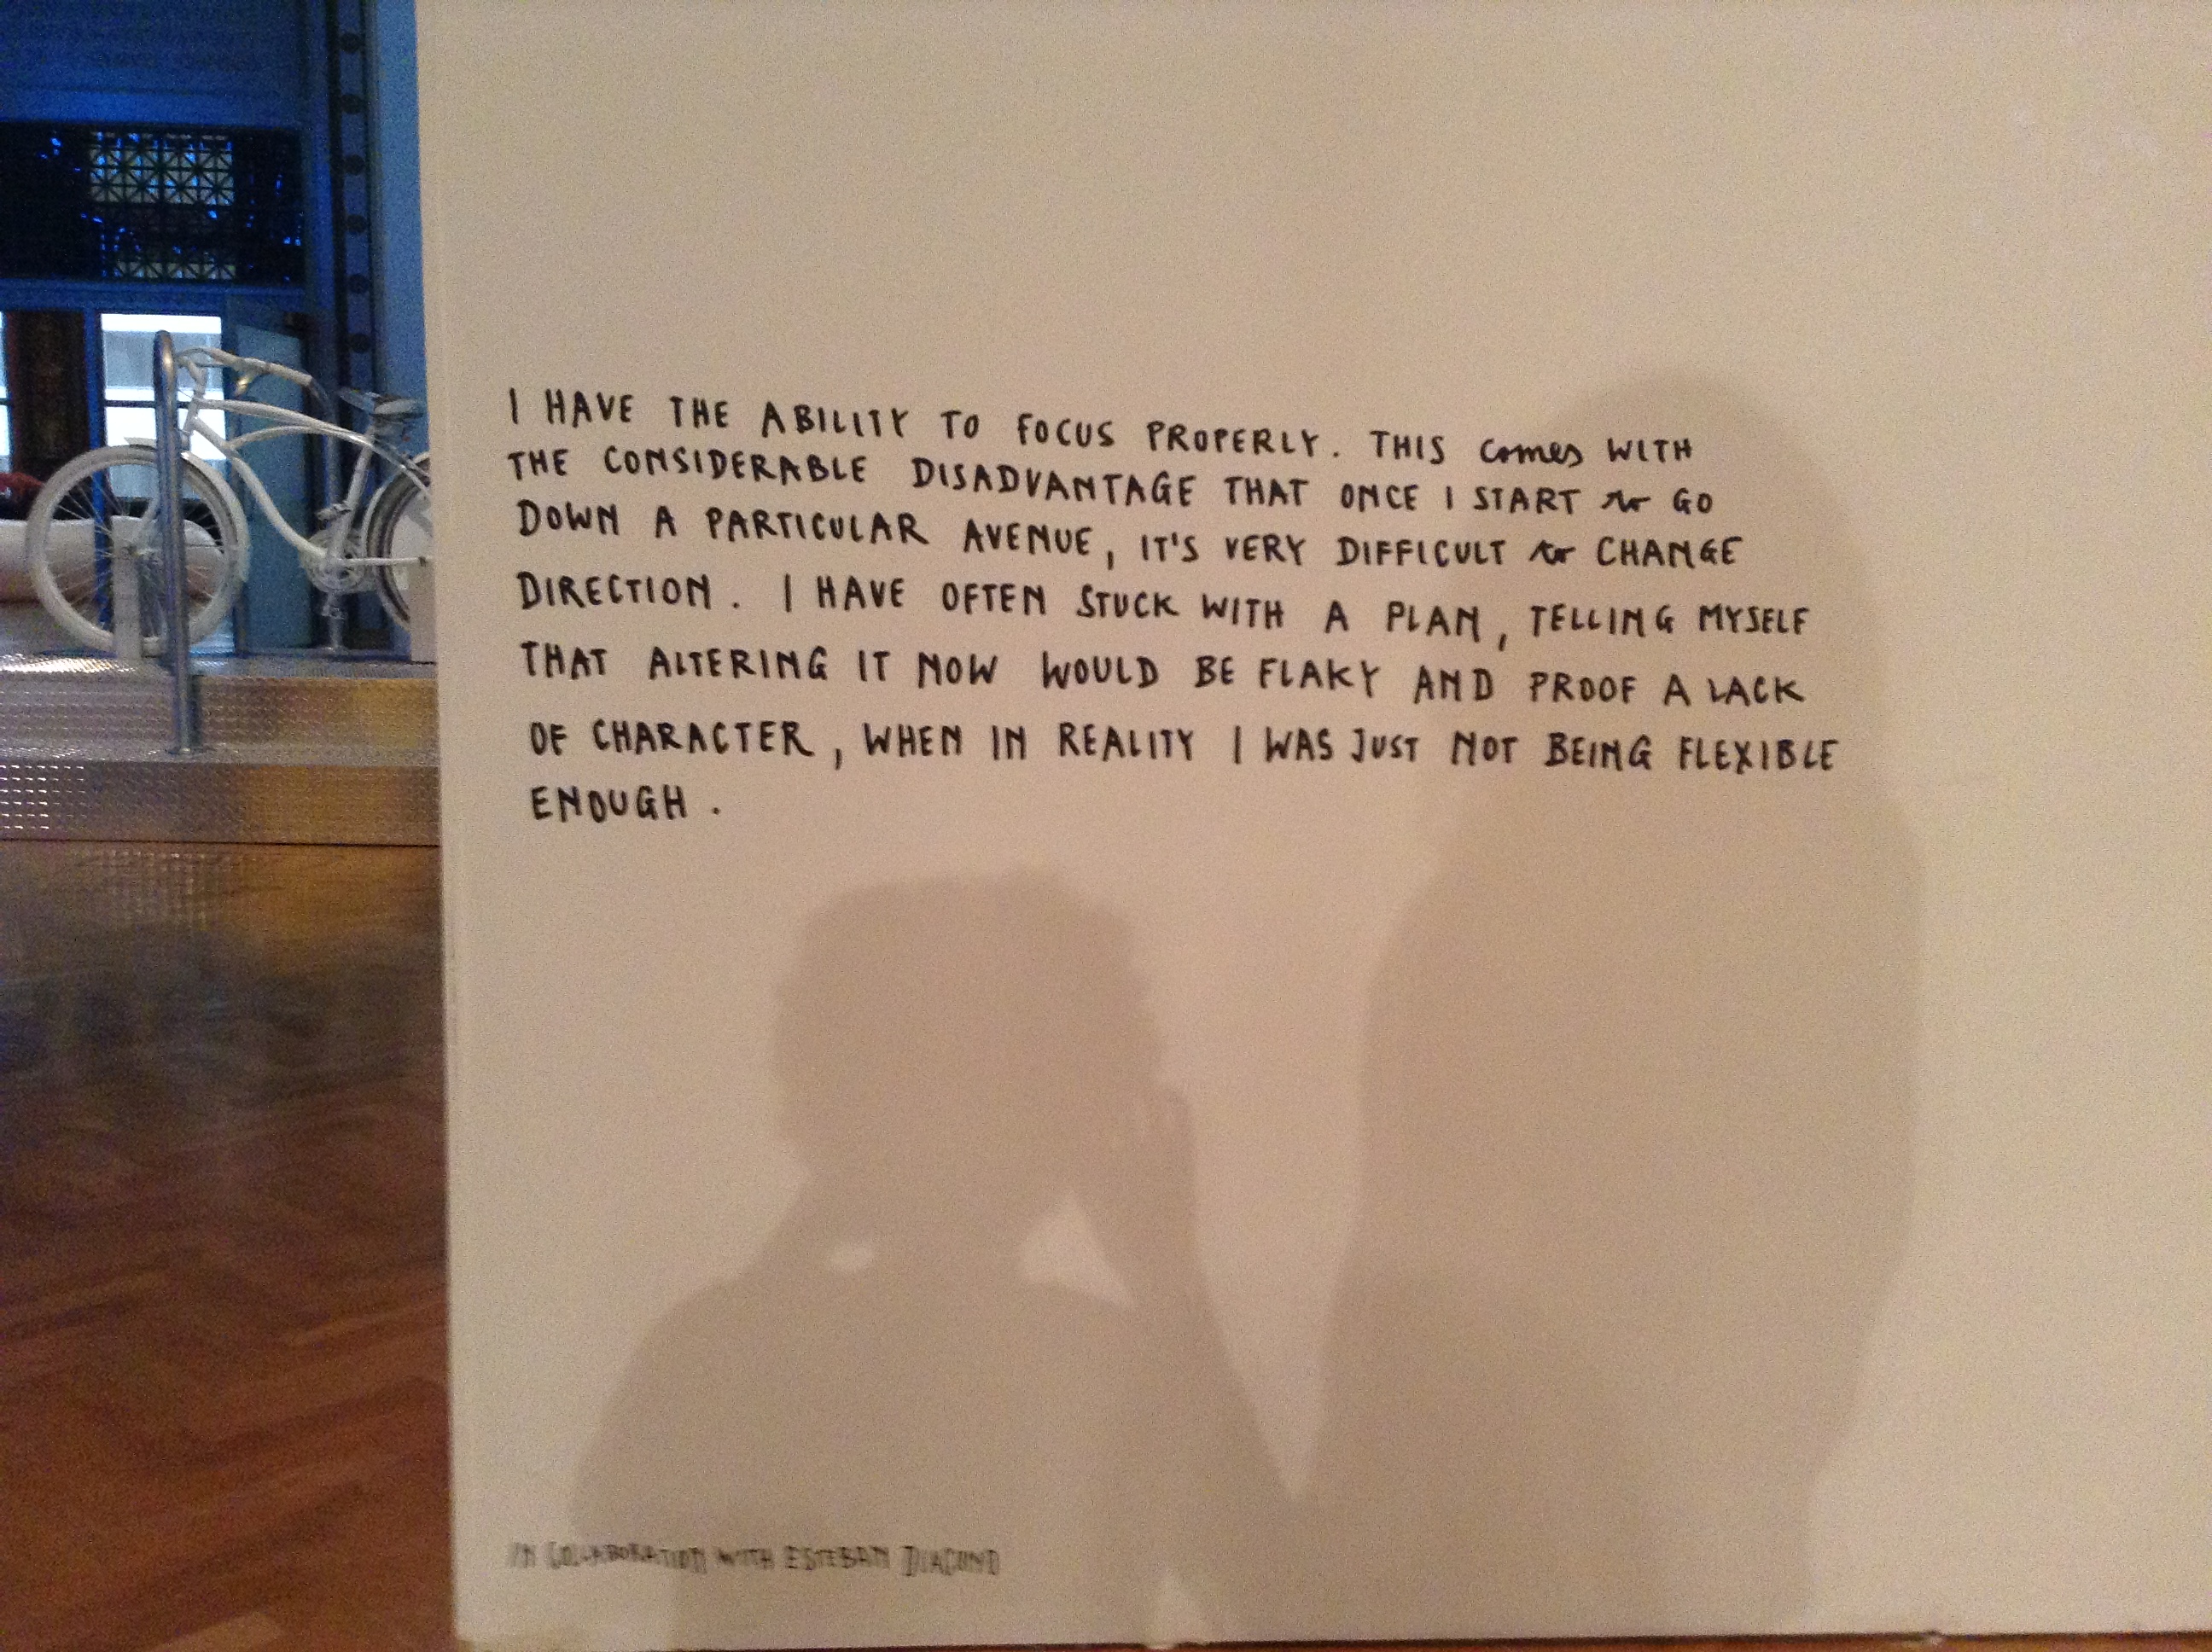 I HAVE THE ABILITY TO FOCUS PROPERLY. THIS comes WITH
THE CONSIDERABLE DISADVANTAGE THAT ONCE I START to GO
DOWN A PARTICULAR AVENUE, IT'S VERY DIFFICULT to CHANGE
DIRECTION. I HAVE OFTEN STUCK WITH A PLAN, TELLING MYSELF
THAT ALTERING IT NOW WOULD BE FLAKY AND PROOF A LACK
OF CHARACTER, WHEN IN REALITY I WAS JUST NOT BEING FLEXIBLE
ENOUGH.
IN COLLABORATION WITH ESTEBAN DIACONO